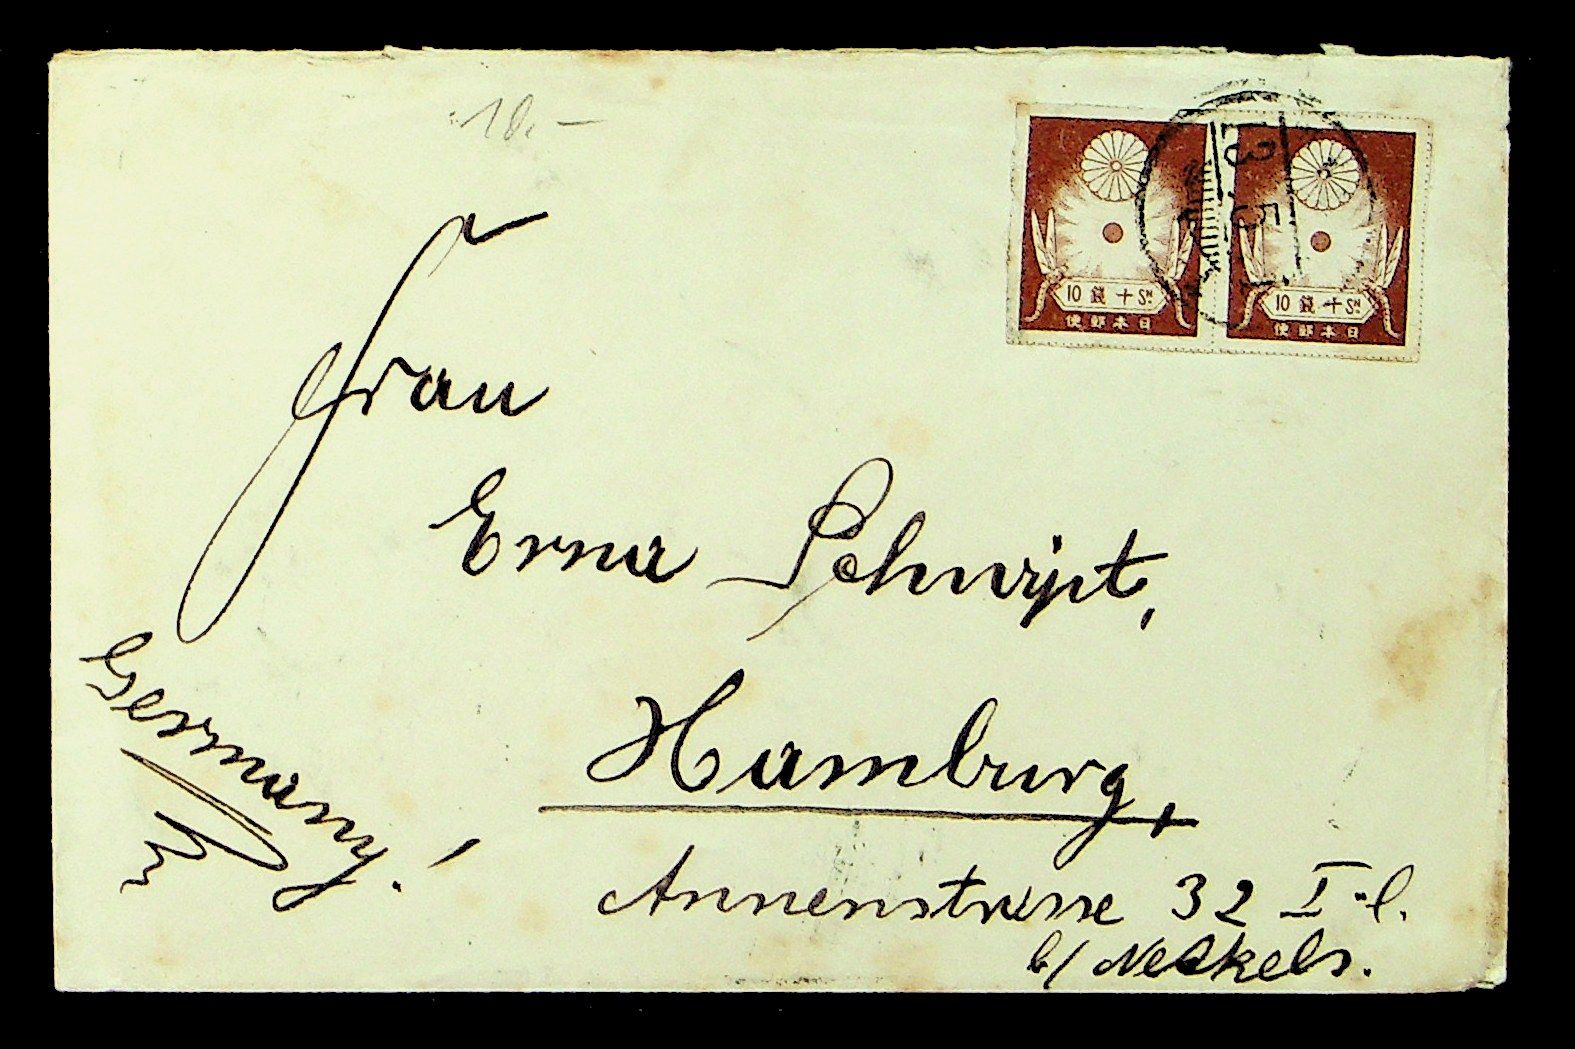 10.-
13
5
10 錢 十 Sn
便郵本日
10 錢 十 Sn
便郵本日
Frau
Erna
Hamburg,
Germany.
Annenstrasse 32 I. l.
b/ Neckels.